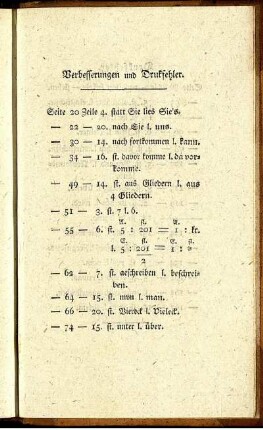 Verbesserungen und Drukfehler.
Seite 20 Zeile 4. statt Sie lies Sie's.
— 22 — 20. nach Sie l. uns.
— 30 — 14. nach fortkommen l. kann.
— 34 — 16. st. davor komme l. da vor-
komme.
— 49 — 14. st. aus Gliedern l. aus
4 Gliedern.
— 51 — 3. st. 7 l. 6.
— 55 — 6. st. 5 : 201 = 1 : kr.
l. 5 : 201 = 1 : ?
2
— 62 — 7. st. geschrieben l. beschrei-
ben.
— 64 — 15. st. nun l. man.
— 66 — 20. st. Viereck l. Vieleck.
— 74 — 15. st. unter l. über.